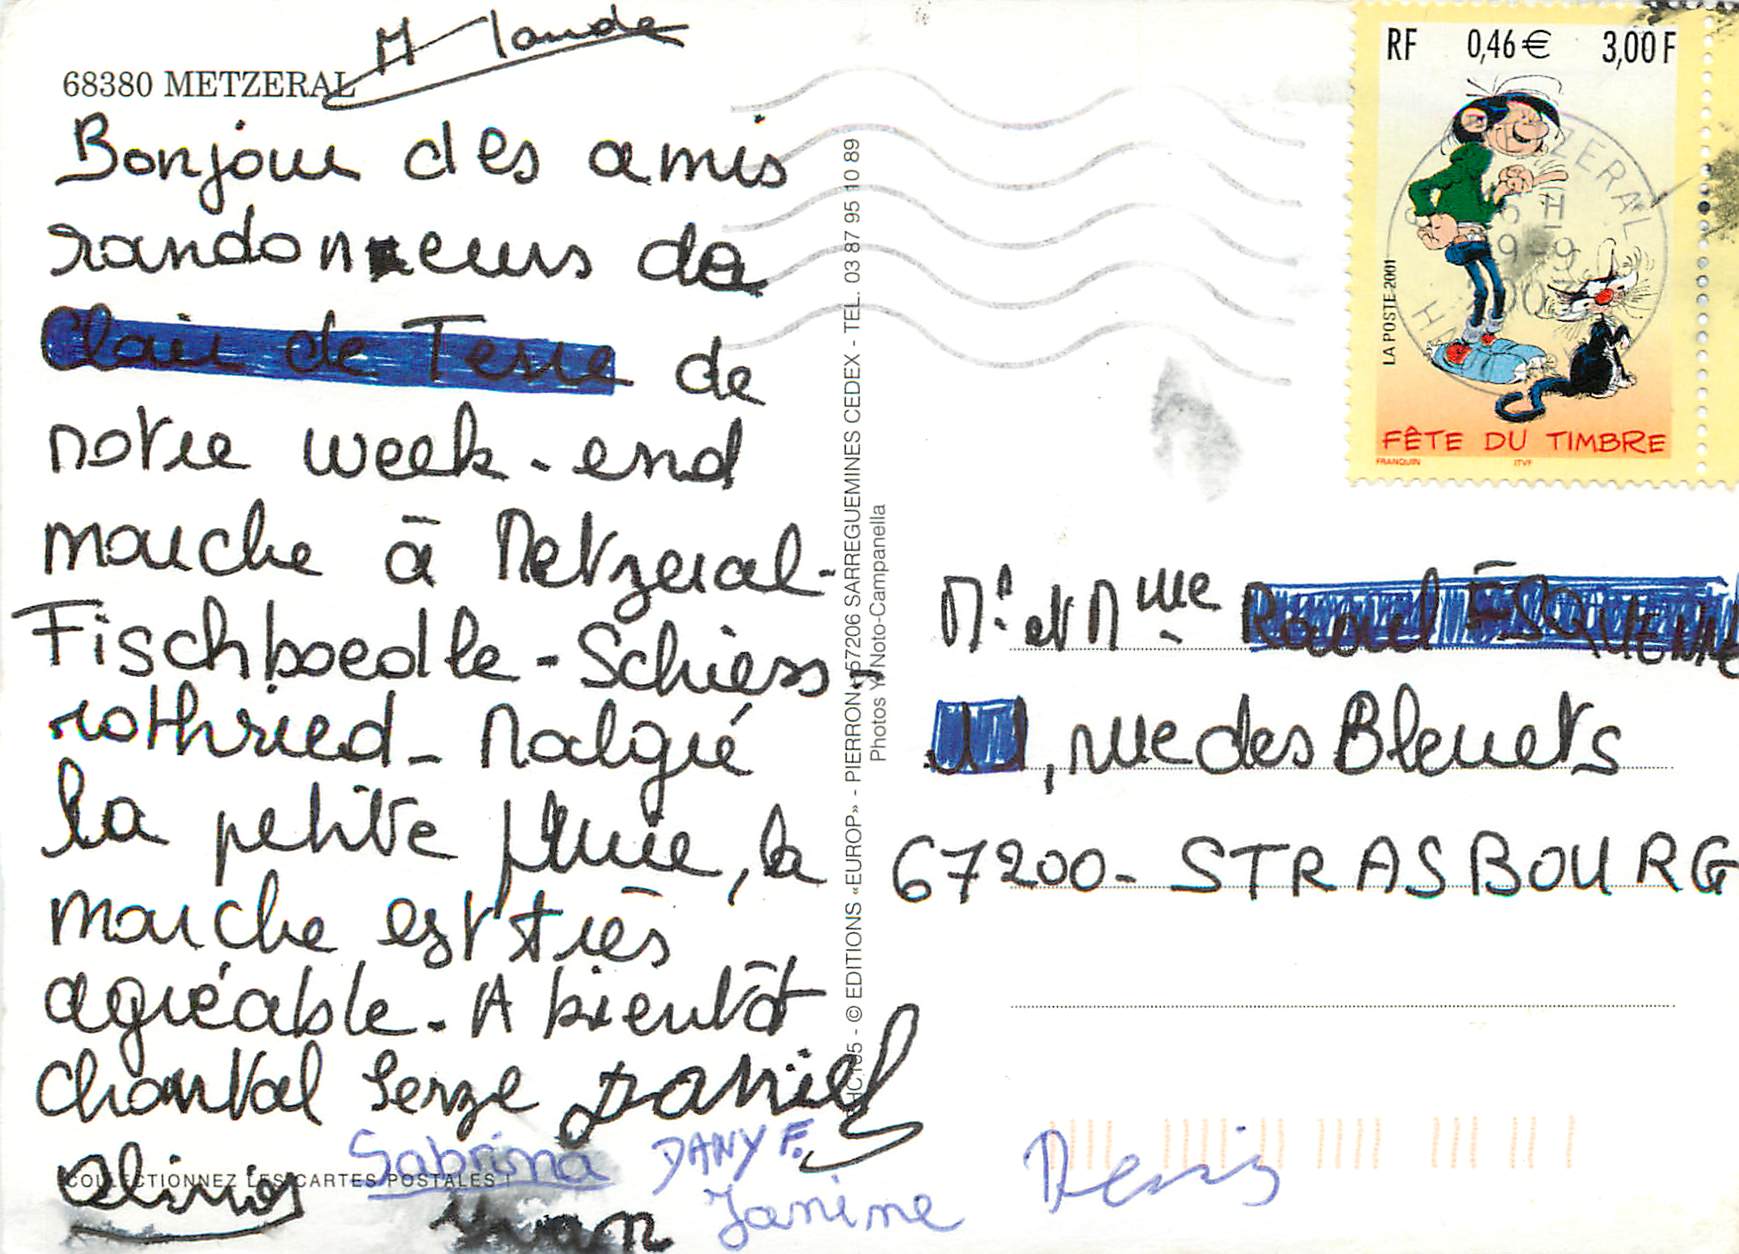 M laude
68380 METZERAL
Bonjour des amis
randonneurs da
Clair de Terre de
notre week-end
marche à Metzeral-
Fischboedle-Schiess-
rothried- Malgré
la petite pluie, la
marche est très
agréable. A bientôt
Chantal Serge Daniel
Sabrina DANY F.
COLLECTIONNEZ LES CARTES POSTALES !
Yvan Janine Denis
HC 105 - © EDITIONS «EUROP» - PIERRON - 57206 SARREGUEMINES CEDEX - TEL. 03 87 95 10 89
Photos Y. Noto-Campanella
RF 0,46 € 3,00 F
LA POSTE 2001
METZERAL
FÊTE DU TIMBRE
FRANQUIN ITVF
Mr et Mme
, rue des Bleuets
67200- STRASBOURG